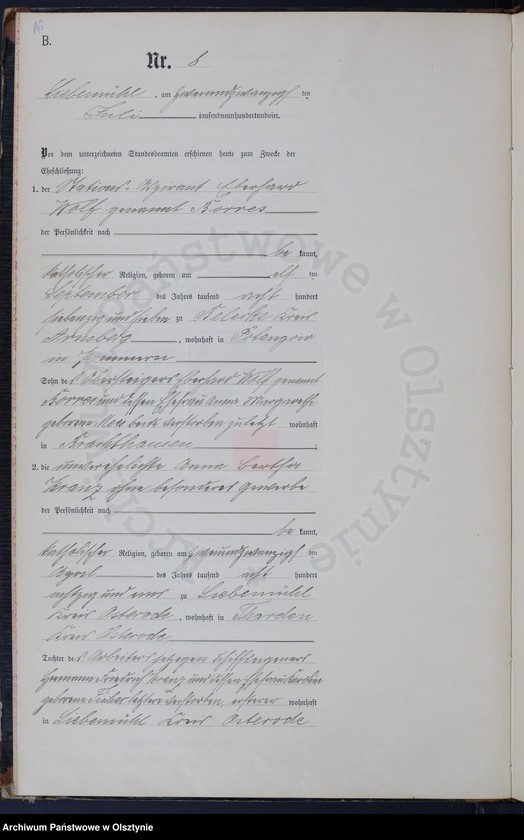 B.
Nr. 8
Liebemühl, am zweiundzwanzigsten
Juli tausendneunhundertundvier.
Vor dem unterzeichneten Standesbeamten erschienen heute zum Zwecke der
Eheschließung:
1. der Stations-Aspirant Eberhard
Wolf genannt Korres
der Persönlichkeit nach
be kannt,
katholischer Religion, geboren am elf ten
September des Jahres tausend acht hundert
siebenzig und sieben zu Belecke Kreis
Arnsberg, wohnhaft in
in Pommern
Sohn des Obersteigers Eberhard Wolf genannt
Korres und dessen Ehefrau Anna Margarethe
geborene beide verstorben zuletzt wohnhaft
in
2. die unverehelichte Anna Bertha
Kranz ohne besonderes Gewerbe
der Persönlichkeit nach
be kannt,
katholischer Religion, geboren am zweiundzwanzigsten
April des Jahres tausend acht hundert
achtzig und eins zu Liebemühl
Kreis Osterode, wohnhaft in Tharden
Kreis Osterode
Tochter des Arbeiters jetzigen
Hermann Kranz und dessen Ehefrau
geborene letztere verstorben, ersterer wohnhaft
in Liebemühl Kreis Osterode
Archiwum Państwowe w Olsztynie
Archiwum Państwowe w Olsztynie